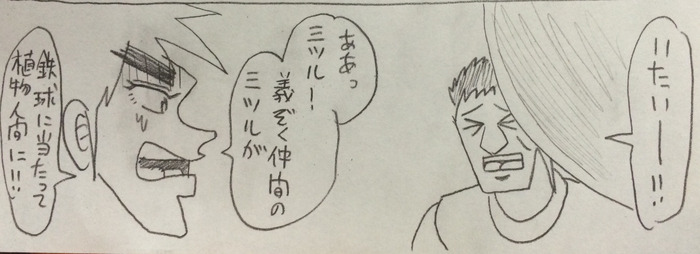 いたいーー!!
ああっ
ミツルー!
義ぞく仲間の
ミツルが
鉄球に当たって
植物人間に!!!